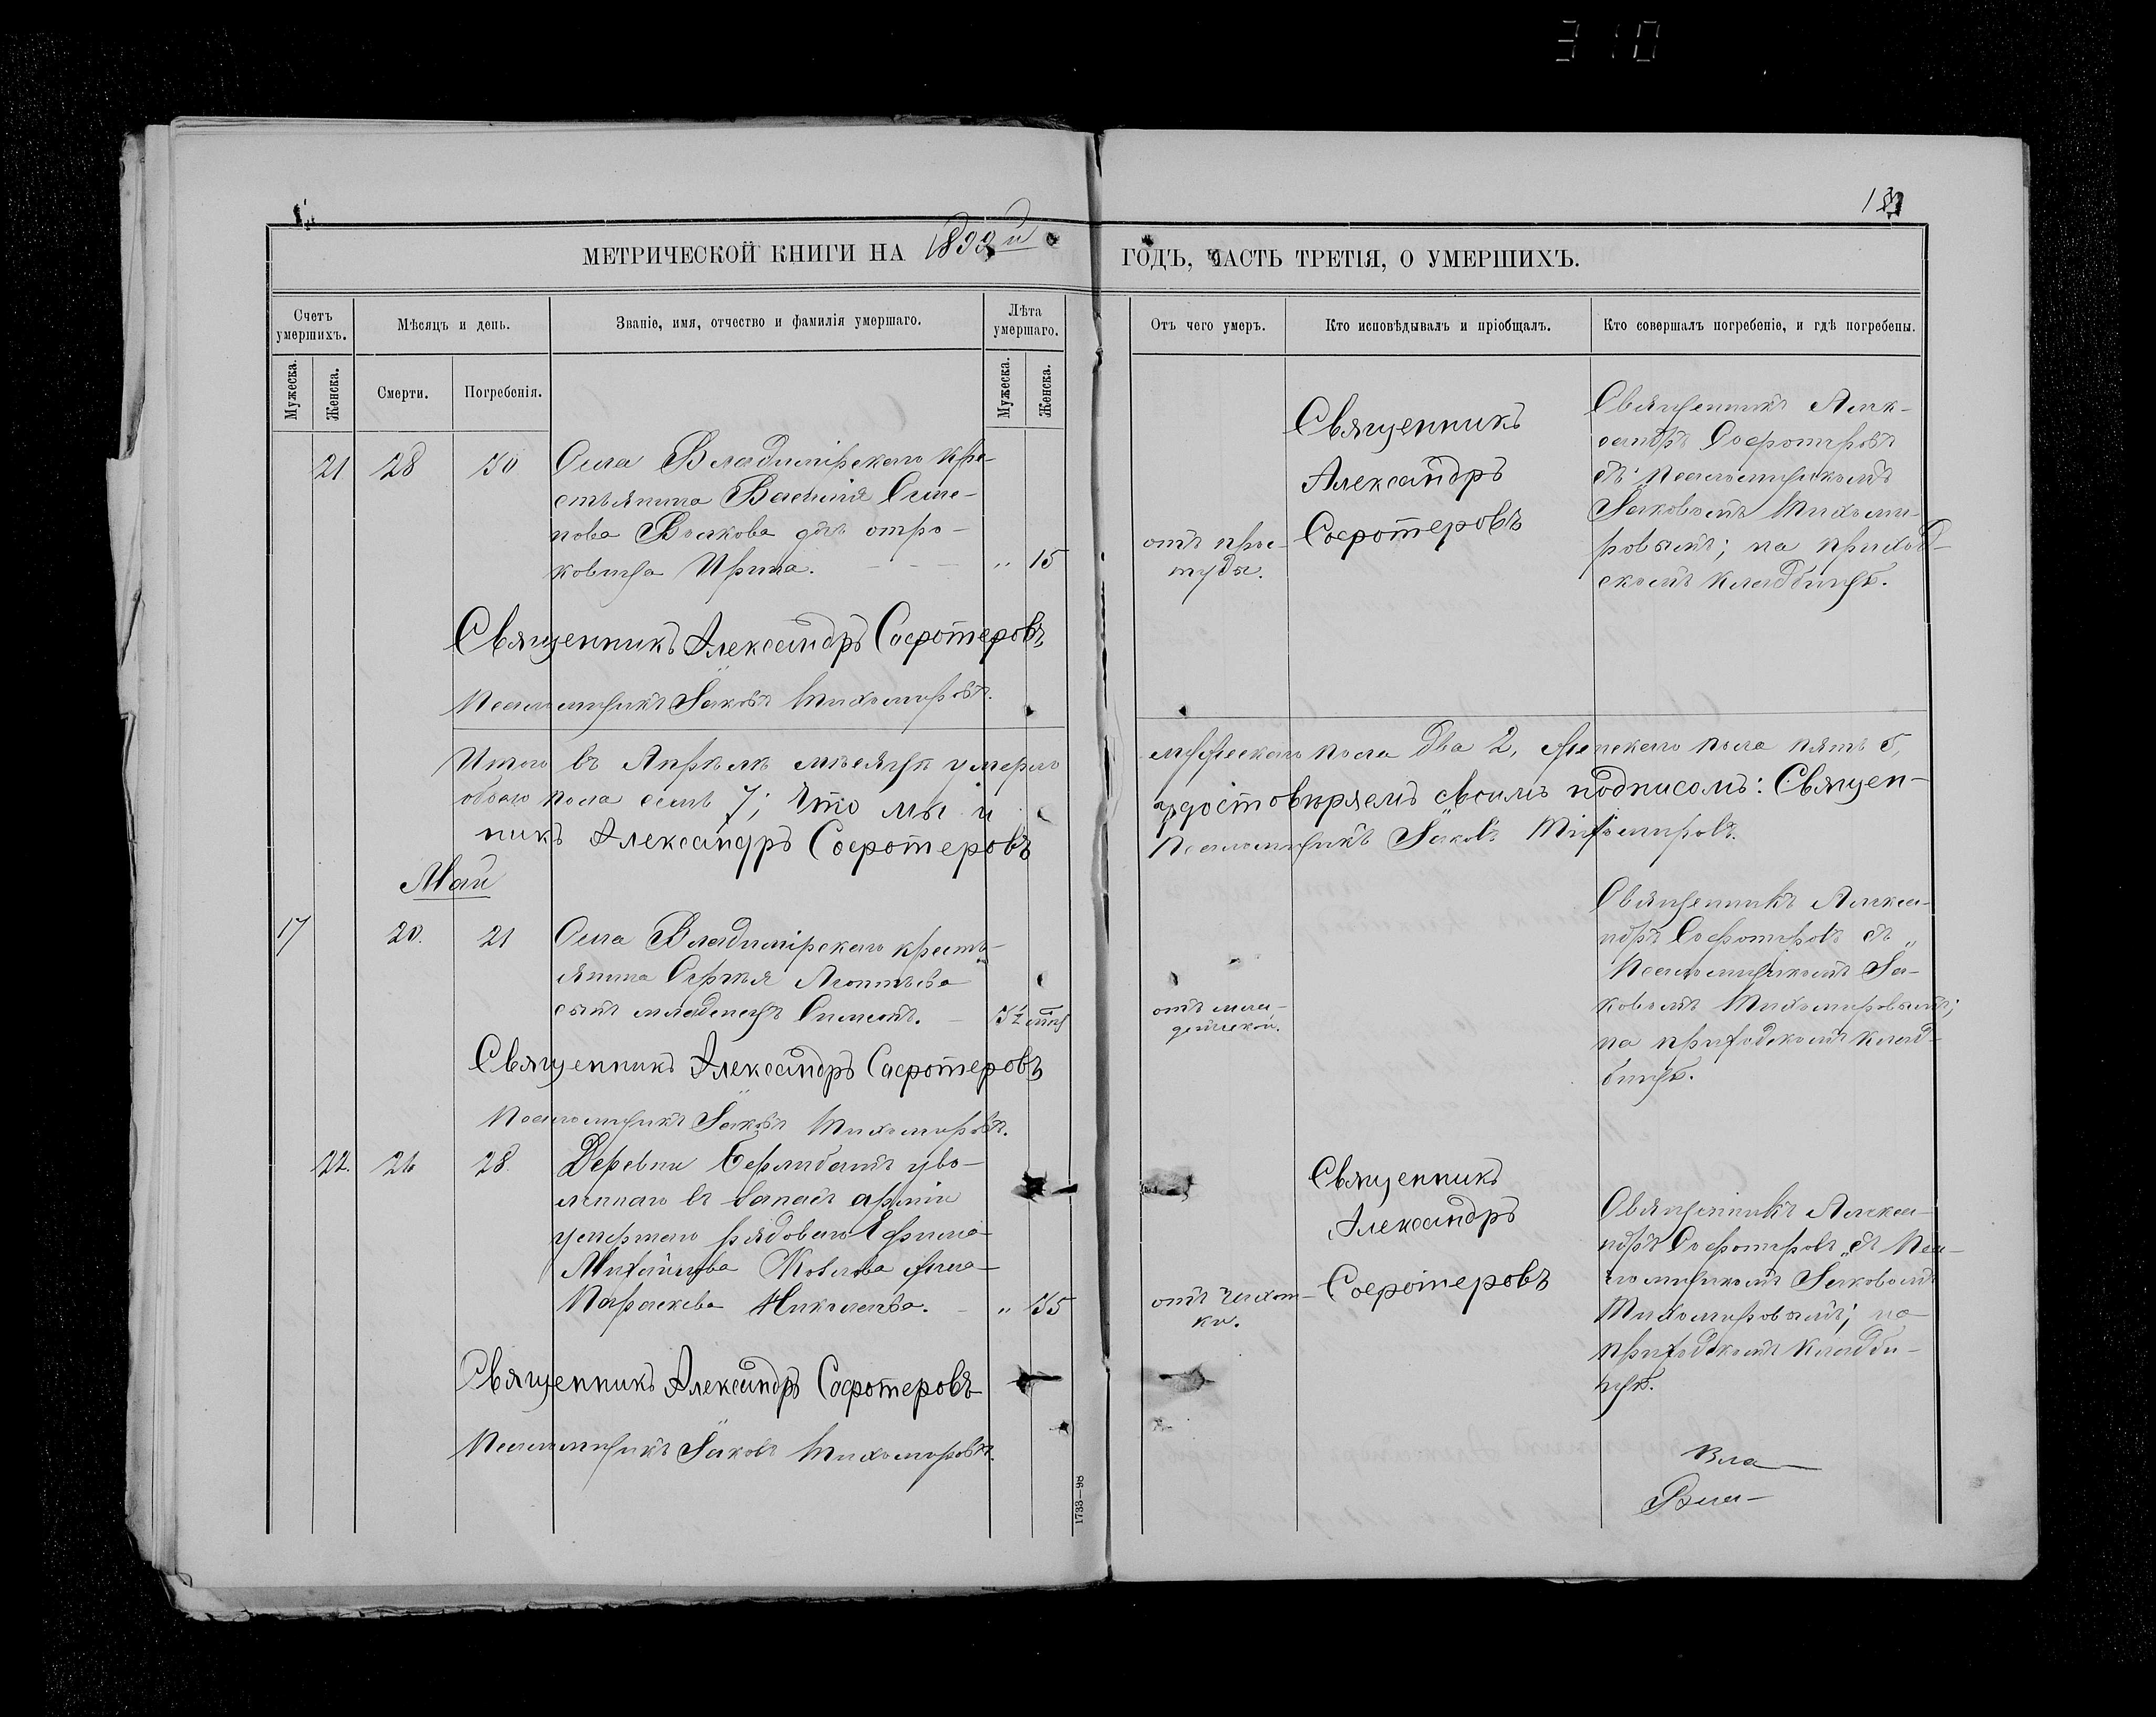 310
МЕТРИЧЕСКОЙ КНИГИ НА 1899й ГОДЪ, ЧАСТЬ ТРЕТІЯ, О УМЕРШИХЪ.
Счетъ умершихъ.
Мѣсяцъ и день.
Званіе, имя, отчество и фамилія умершаго.
Лѣта умершаго.
Отъ чего умеръ.
Кто исповѣдывалъ и пріобщалъ.
Кто совершалъ погребеніе, и гдѣ погребены.
Мужеска.
Женска.
Смерти.
Погребенія.
Мужеска.
Женска.
21 28 30 Села Владимірскаго кре-
стьянина Василія Симе-
нова Волкова дѣв. отро-
ковица Ирина. - - - „ 15
отъ прос-
туды.
Священникъ
Александръ
Сосфотеровъ
Священникъ Алек-
сандръ Сосфотеровъ
съ псаломщикомъ
Іаковомъ Тихоми-
ровымъ; на приход-
скомъ кладбищѣ.
Священникъ Александръ Сосфотеровъ
Псаломщикъ Іаковъ Тихомировъ.
Итого въ Апрѣлѣ мѣсяцѣ умерло мужескаго пола два 2, женскаго пола пять 5,
обоего пола семь 7; Что мы и удостовѣряемъ своимъ подписомъ: Священ-
никъ Александръ Сосфотеровъ Псаломщикъ Іаковъ Тихомировъ.
Май
17 20. 21 Села Владимірскаго кресть-
янина Сергѣя Леонтьева
сынъ младенецъ Симеонъ. - 3½ мѣс
отъ мла-
денческой.
Священникъ Алекса-
ндръ Сосфотеровъ съ „
Псаломщикомъ Іа-
ковомъ Тихомировымъ;
на приходскомъ клад-
бищѣ.
Священникъ Александръ Сосфотеровъ
Псаломщикъ Іаковъ Тихомировъ.
22. 26 28. Деревни уво-
леннаго въ запасъ арміи
умершаго рядоваго Ефима
Михайлова Козлова жена
Параскева Николаева. - „ 35
отъ чахот-
ки.
Священникъ
Александръ
Сосфотеровъ
Священникъ Алекса-
ндръ Сосфотеровъ „съ Пса-
ломщикомъ Іаковомъ
Тихомировымъ; на
приходскомъ кладби-
щѣ.
Священникъ Александръ Сосфотеровъ
Псаломщикъ Іаковъ Тихомировъ.
Вла-
1733—98